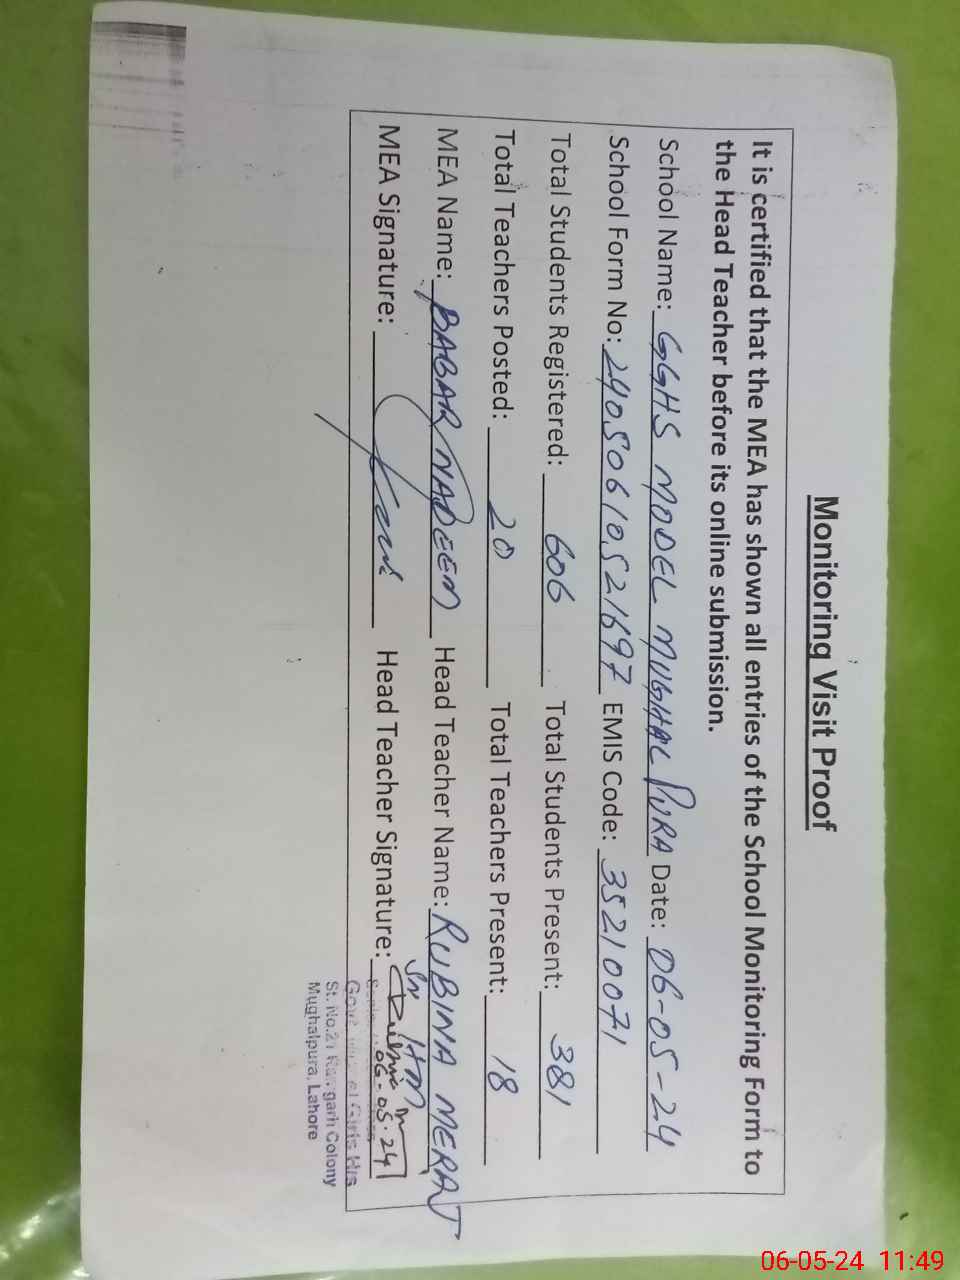 Monitoring Visit Proof
It is certified that the MEA has shown all entries of the School Monitoring Form to
the Head Teacher before its online submission.
School Name: GGHS MODEL MUGHAL PURA Date: 06-05-24
School Form No: 24050610521697 EMIS Code: 35210071
Total Students Registered: 606 Total Students Present: 381
Total Teachers Posted: 20 Total Teachers Present: 18
MEA Name: BABAR NADEEM Head Teacher Name: RUBINA MERAJ
Sr HM
MEA Signature: Head Teacher Signature:
06-05-24
Govt. Girls
St. No.21 Colony
Mughalpura, Lahore
06-05-24 11:49